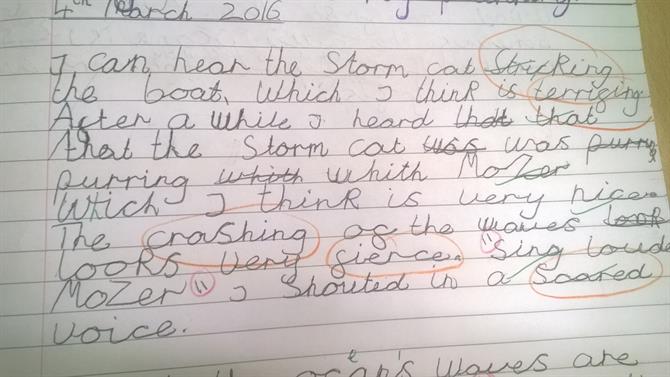 4th March 2016
I can hear the Storm cat Stricking
the boat, which I think is terrifing
After a while I heard that that
that the Storm cat was was purring
purring whith whith Mozer
Which I think is very nice.
The crashing of the waves look
looks very fierce. "Sing loud
Mozer" I shouted in a Scared
voice.
ocean's waves are